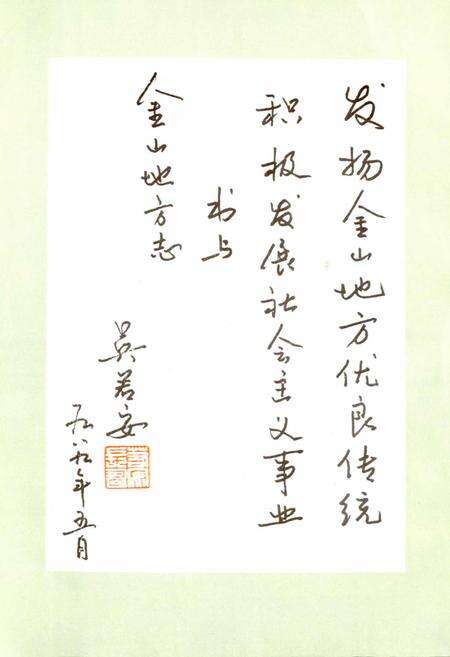 发扬金山地方优良传统
积极发展社会主义事业
书与
金山地方志
吴若安
一九八九年五月